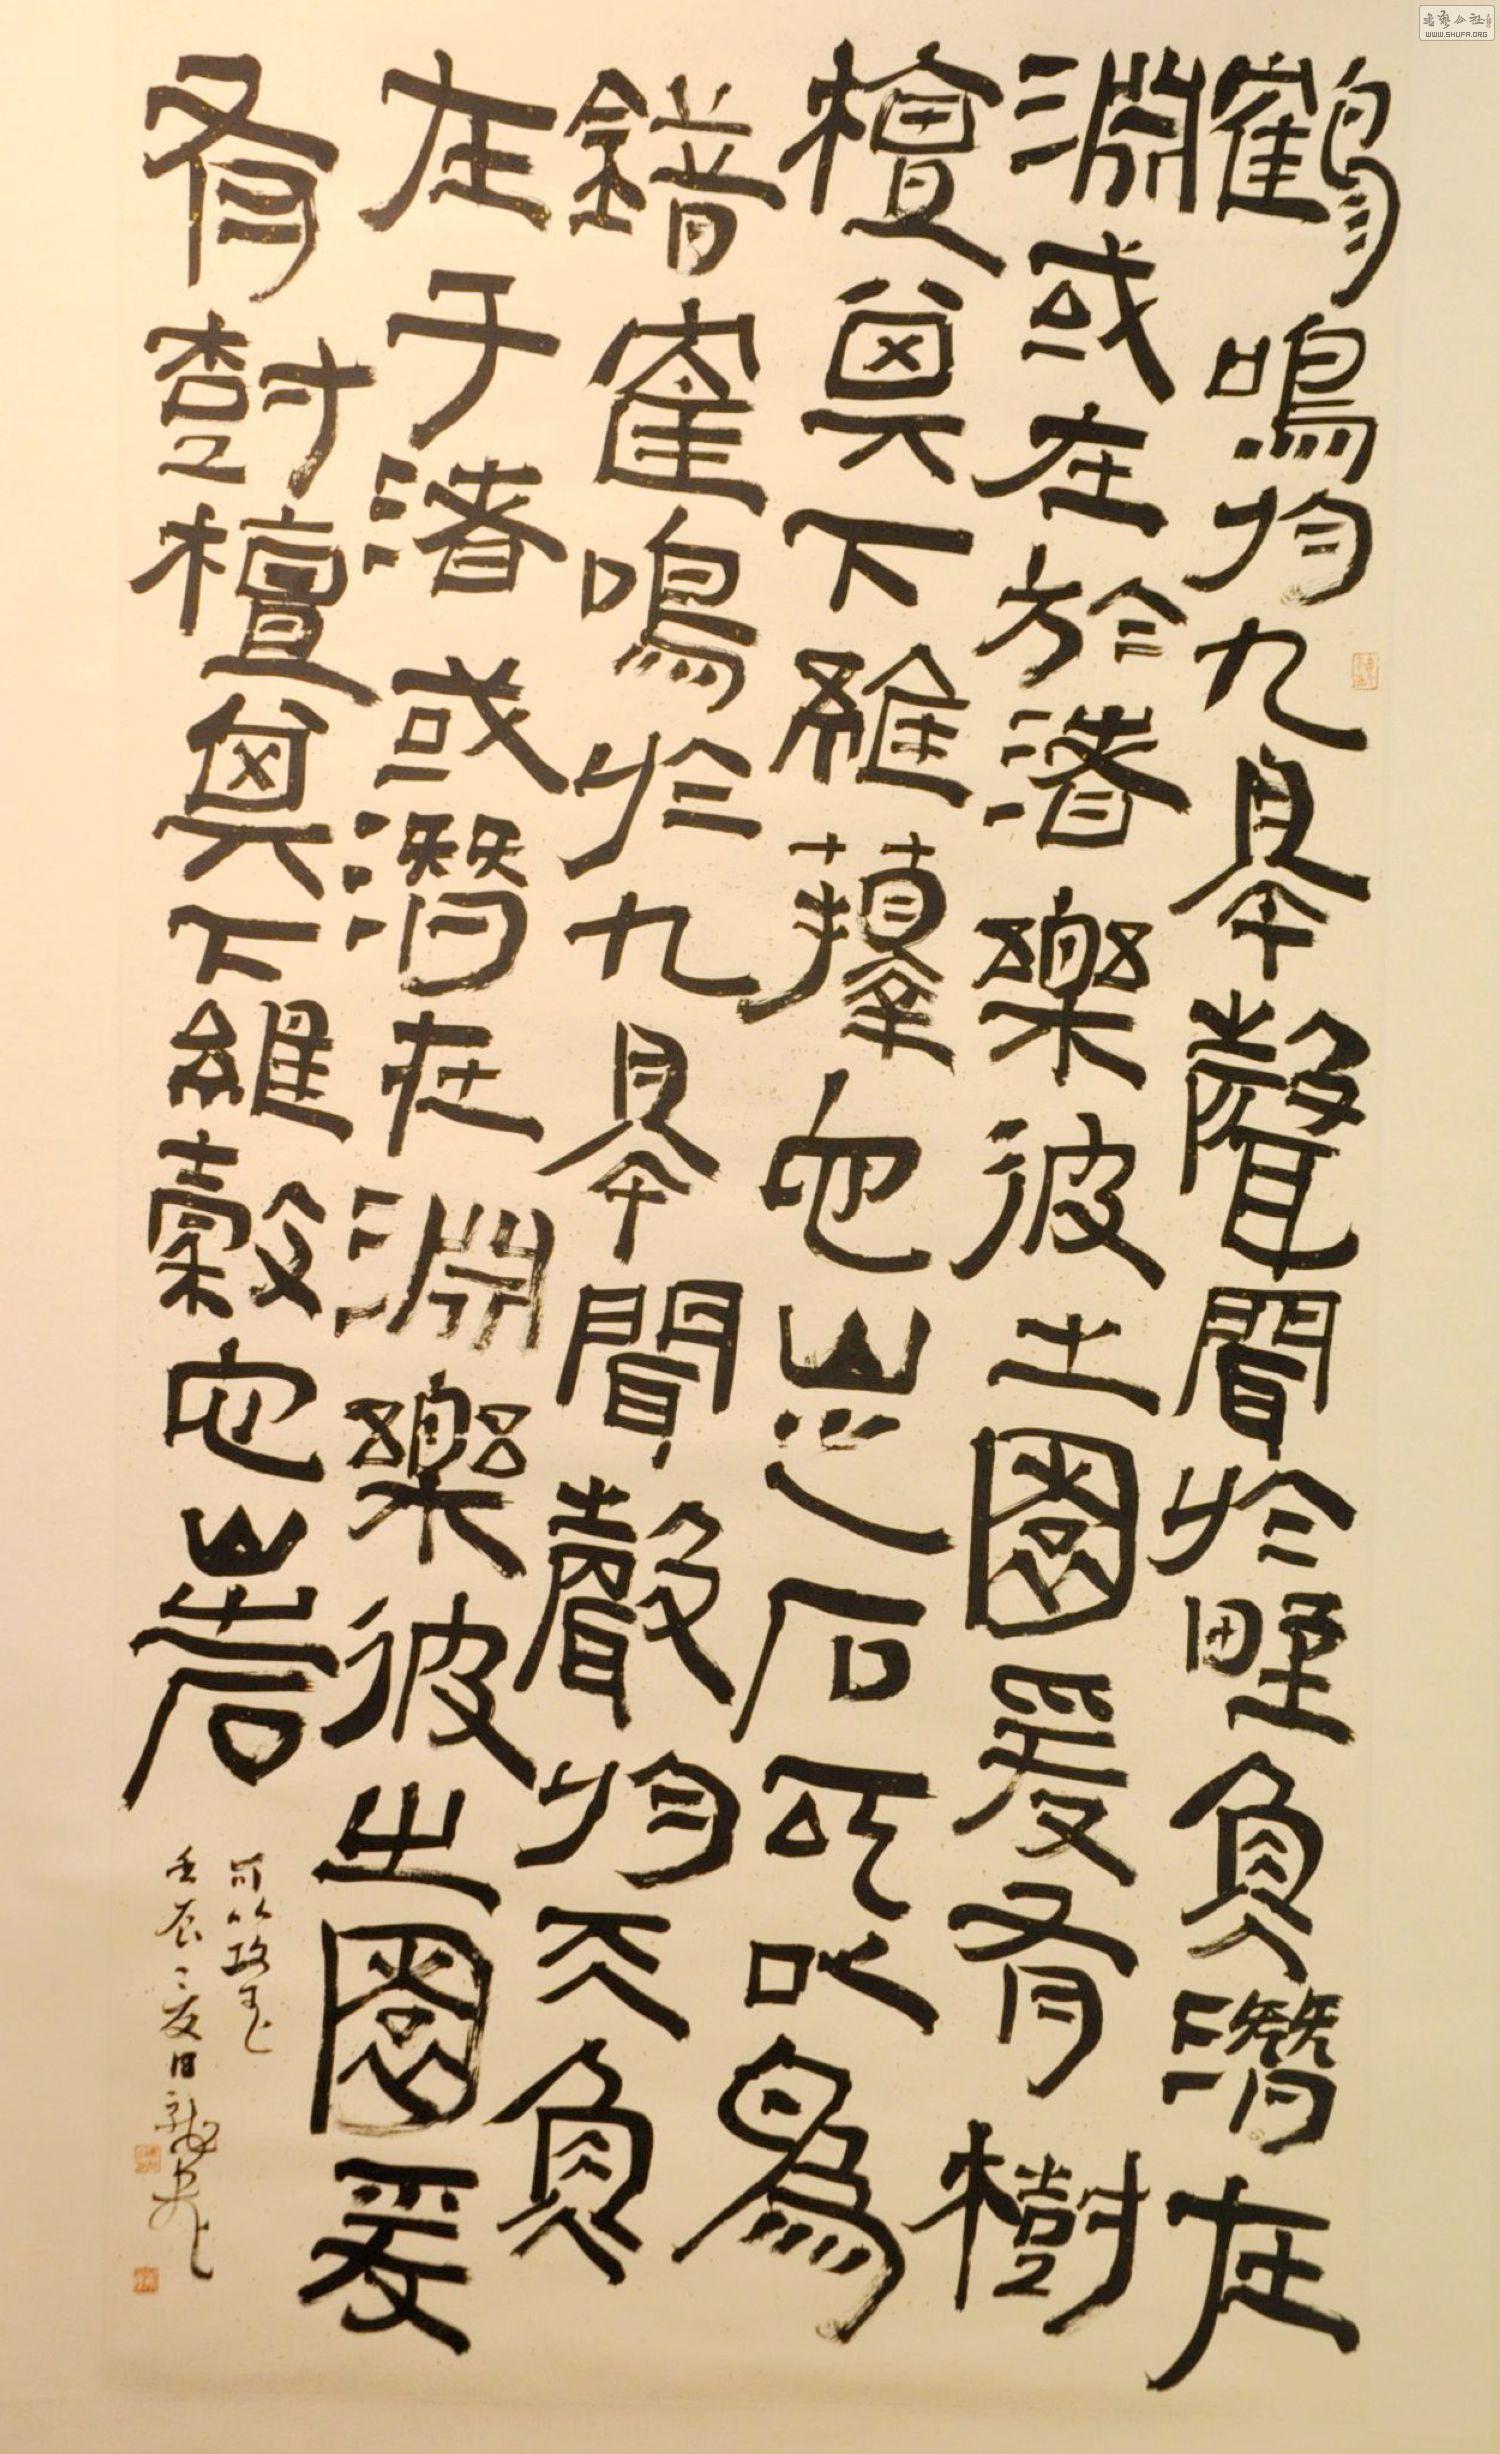 鶴鳴於九皋聲聞於野魚潛在
淵或在於渚樂彼之園爰有樹
檀其下維蘀它山之石可以為
錯鶴鳴於九皋聞聲於天魚
在于渚或潛在淵樂彼之園爰
有樹檀其下維穀它山之石
可以攻玉
壬辰之夏日
WWW.SHUFA.ORG